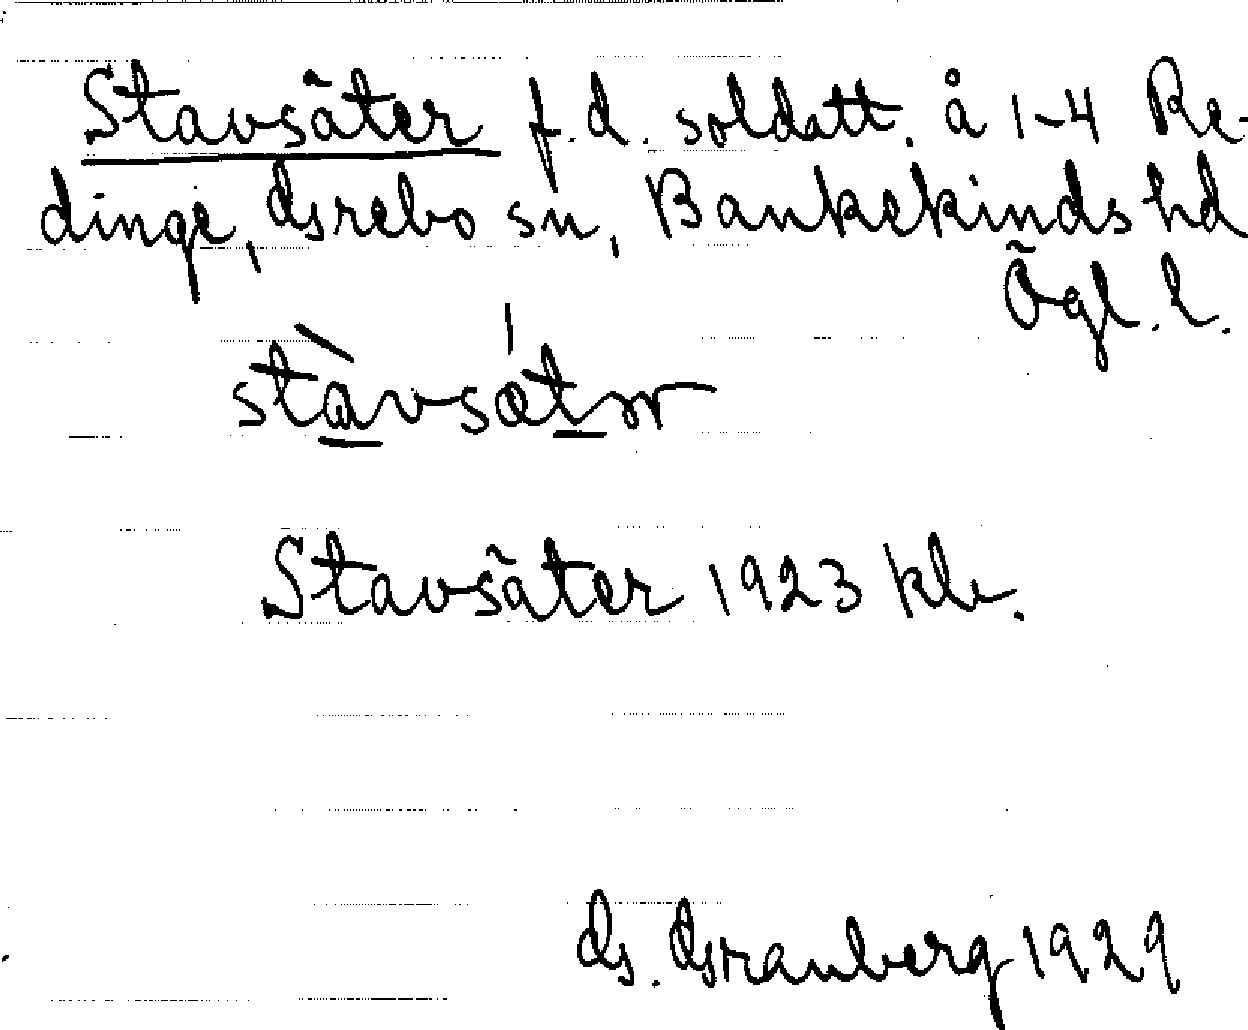 Stavsäter f.d. soldatt. å 1-4 Re-
dinge, Grebo sn, Bankekinds hd
Ögl. l.
stàvsǽtər
Stavsäter 1923 kb.
G. Granberg 1929